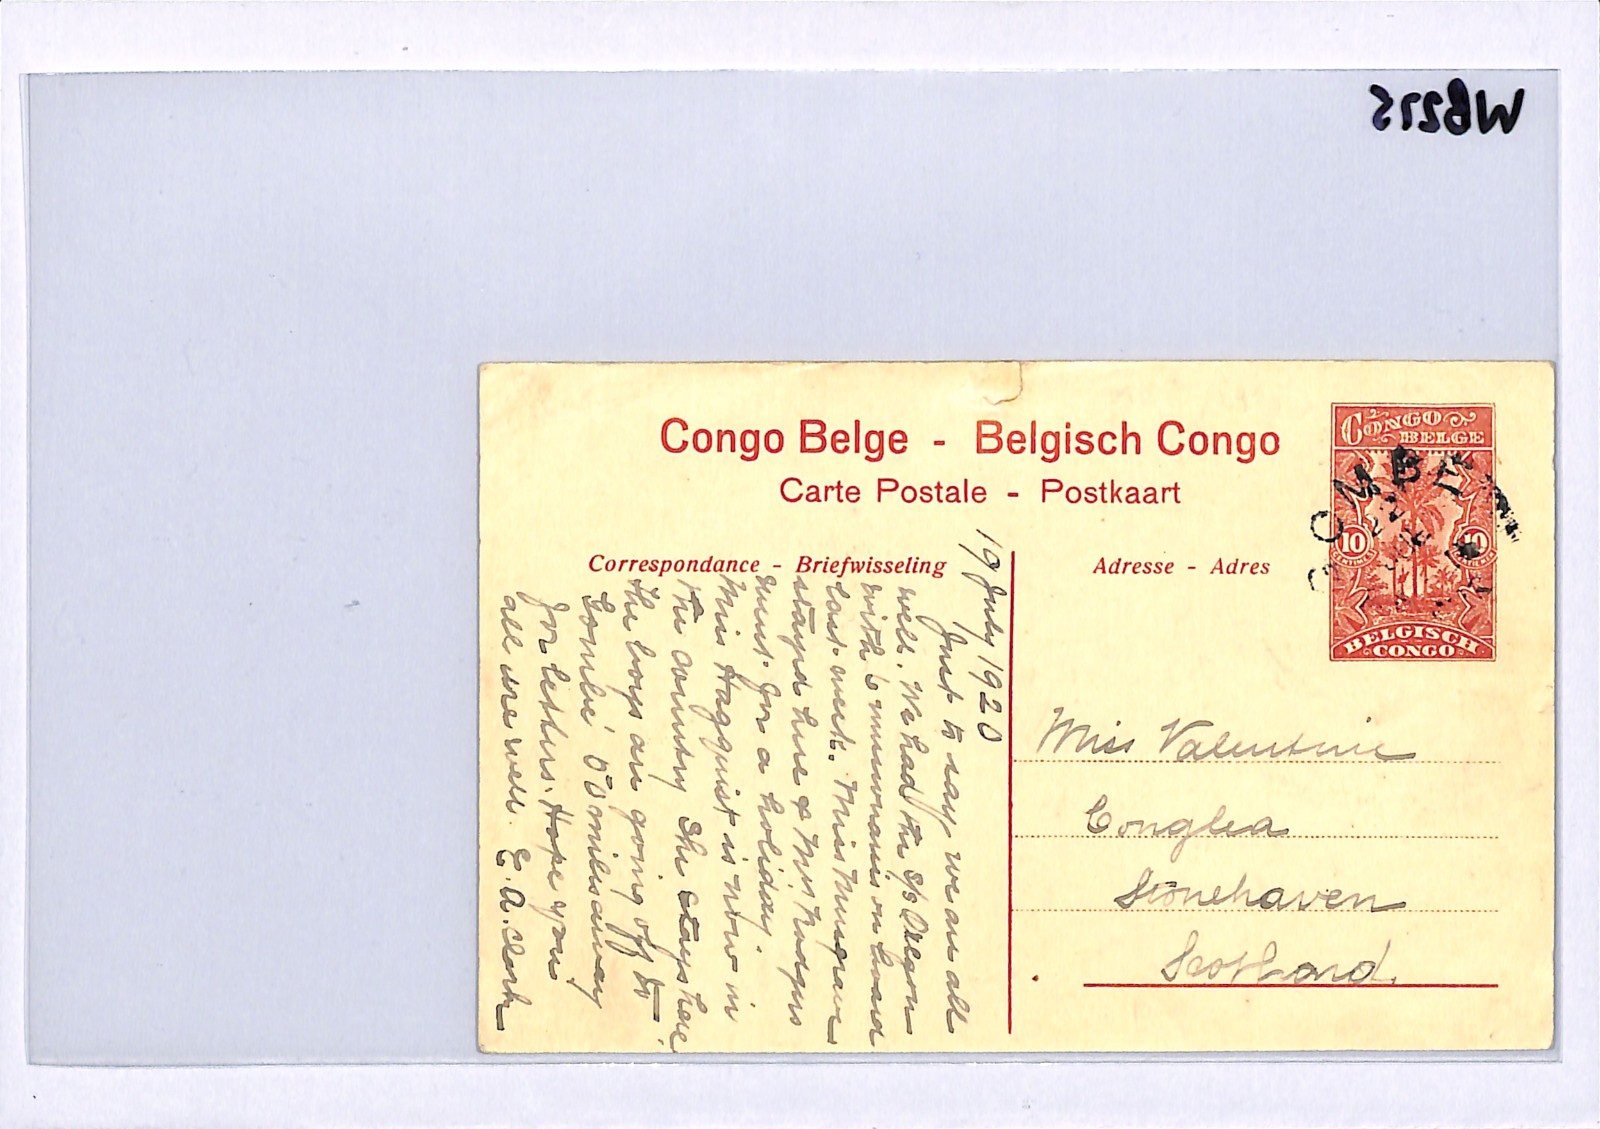 WB275
Congo Belge - Belgisch Congo
Carte Postale - Postkaart
Correspondance - Briefwisseling
Adresse - Adres
CONGO
BELGE
10 10
BELGISCH
CONGO
19 July 1920
Just to say we are all
well. We had the S/S Oregon
with 6 missionaries on board
last week. Miss
stayed here & Mrs. Hodges
for a holiday.
Miss Hagquist is now in
the country she stays here.
The boys are going off to
Gombe 50 miles away
for letters. Hope you
all are well. E. A. Clark
Miss Valentine
Stonehaven
Scotland.